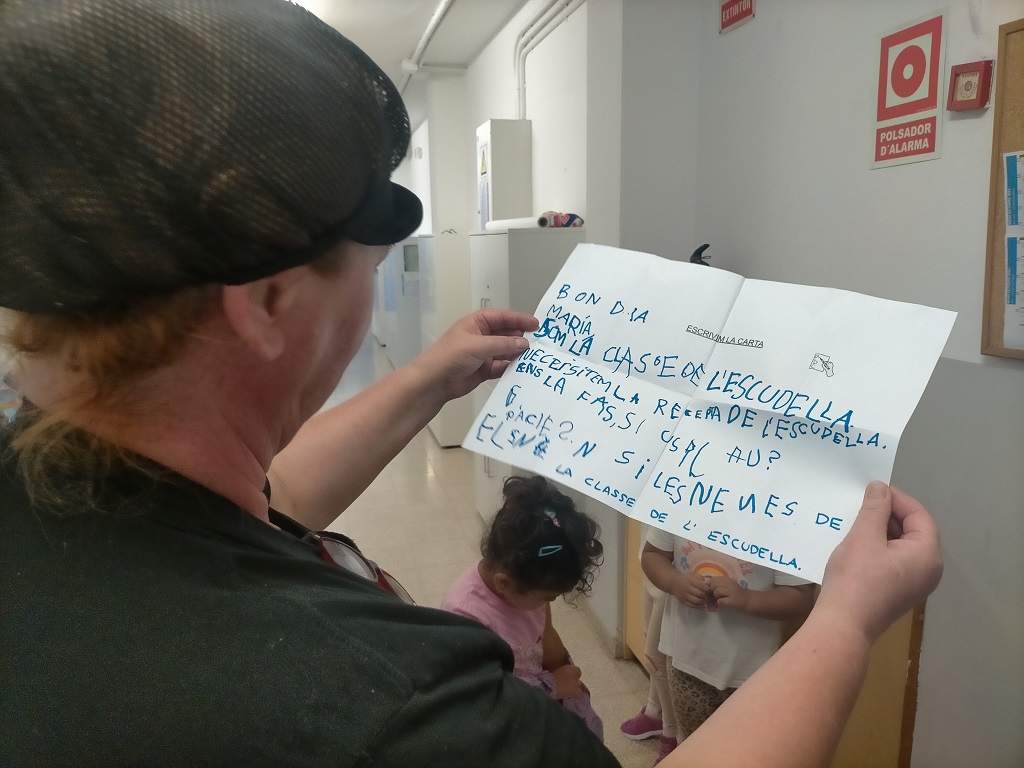 EXTINTOR
POLSADOR
D'ALARMA
ESCRIVIM LA CARTA
BON DIA
MARÍA
SOM LA CLASSE DE L'ESCUDELLA.
NECESSITEM LA RECEPTA DE L'ESCUDELLA.
ENS LA FAS, SI USPL AU?
GRÀCIES.
ELS NENS I LES NENES DE
LA CLASSE DE L'ESCUDELLA.